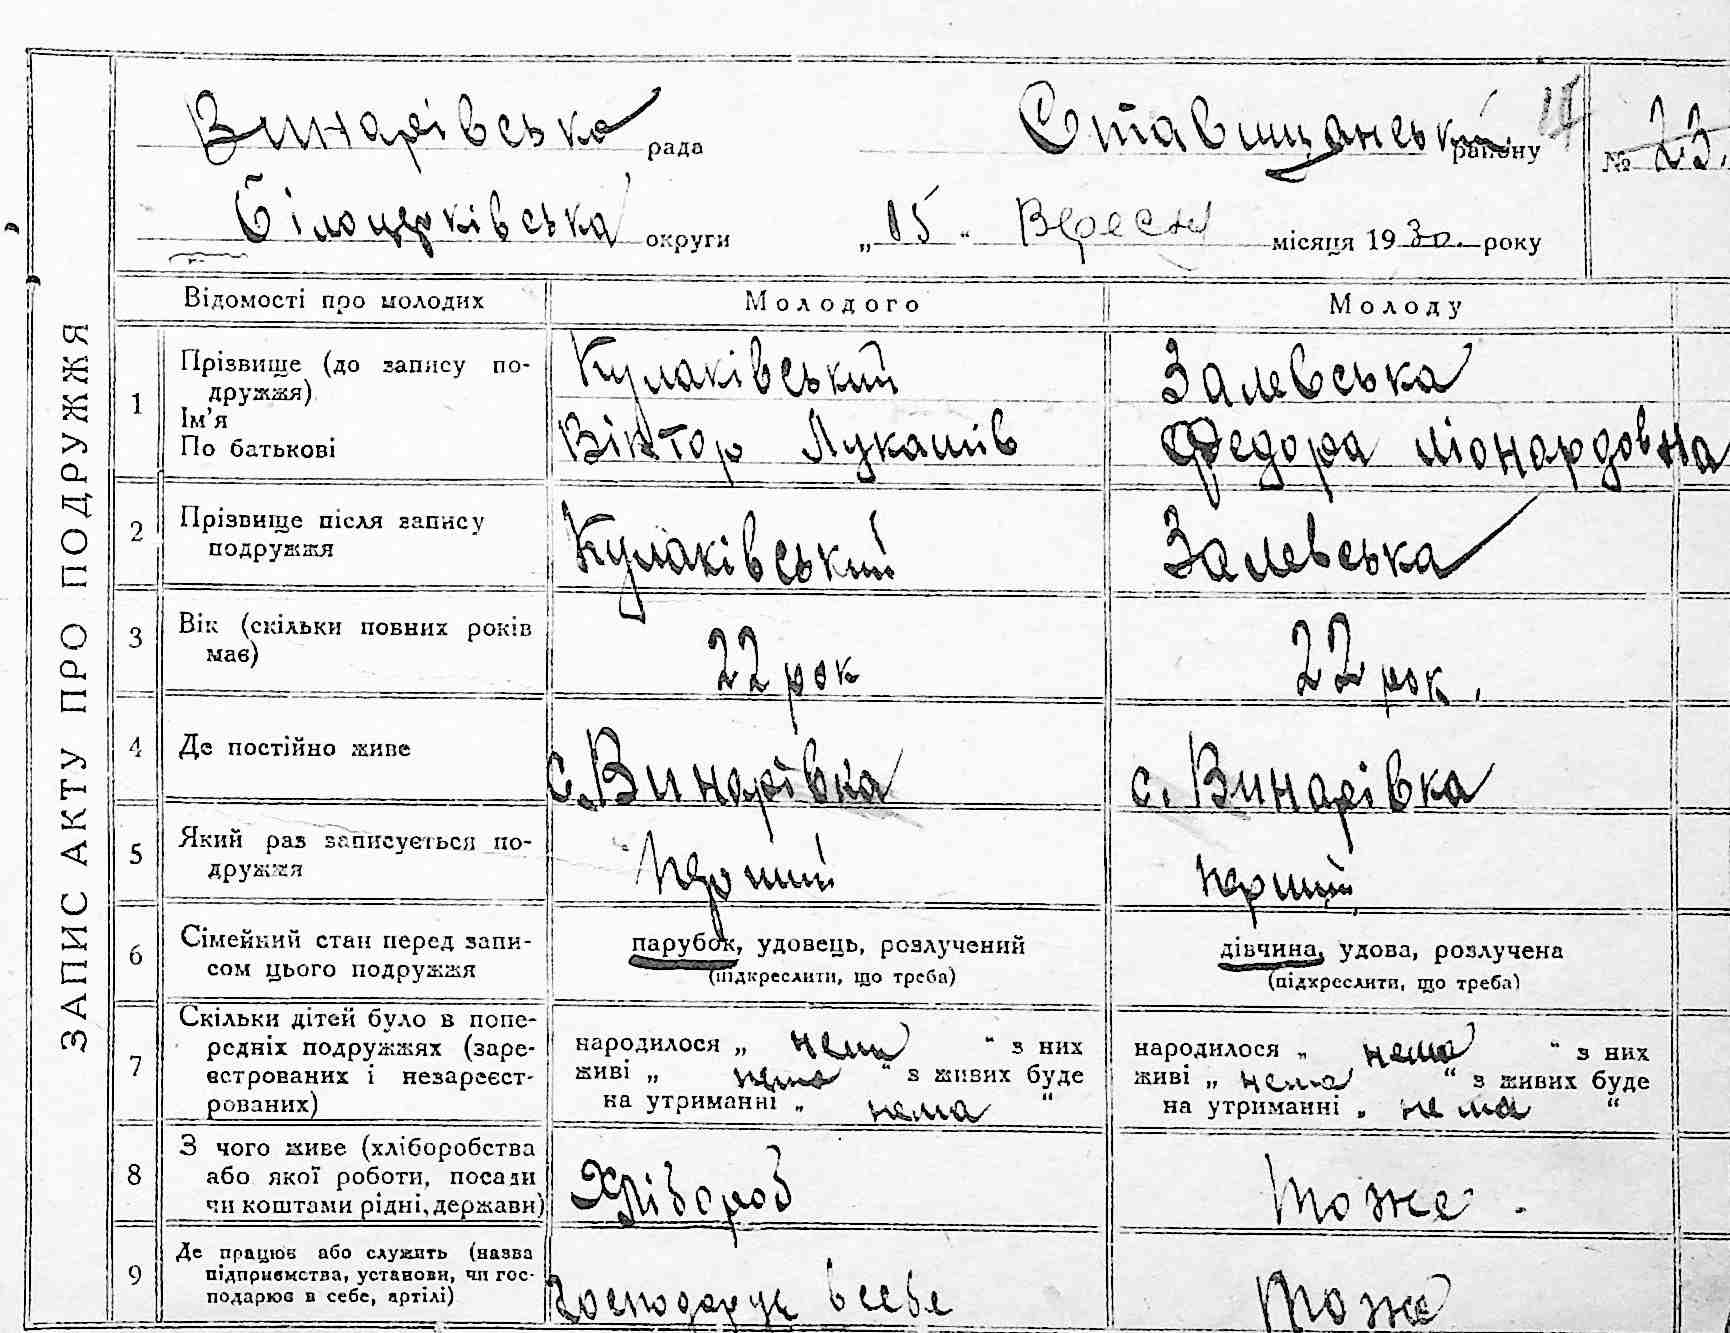 Винарівська рада Ставищанський району 14 № 23.
Білоцерківська округи „ 15 " Вересня місяця 1930. року
ЗАПИС АКТУ ПРО ПОДРУЖЖЯ
Відомості про молодих Молодого Молоду
1 Прізвище (до запису по-
дружжя)
Ім'я
По батькові
Кулаківський
Віктор Лукашів
Залевська
Федора Ліонардовна
2 Прізвище після запису
подружжя
Кулаківський
Залевська
3 Вік (скільки повних років
має)
22 рок
22 рок.
4 Де постійно живе
с. Винарівка
с. Винарівка
5 Який раз записується по-
дружжя
перший
перший
6 Сімейний стан перед запи-
сом цього подружжя
парубок, удовець, розлучений
(підкреслити, що треба)
дівчина, удова, розлучена
(підкреслити, що треба)
7 Скільки дітей було в попе-
редніх подружжях (заре-
єстрованих і незареєст-
рованих)
народилося „ нема " з них
живі „ нема " з живих буде
на утриманні „ нема "
народилося „ нема " з них
живі „ нема " з живих буде
на утриманні „ нема "
8 З чого живе (хліборобства
або якої роботи, посади
чи коштами рідні, держави)
Хлібороб
тоже.
9 Де працює або служить (назва
підприємства, установи, чи гос-
подарює в себе, артілі)
Господарує в себе
тоже